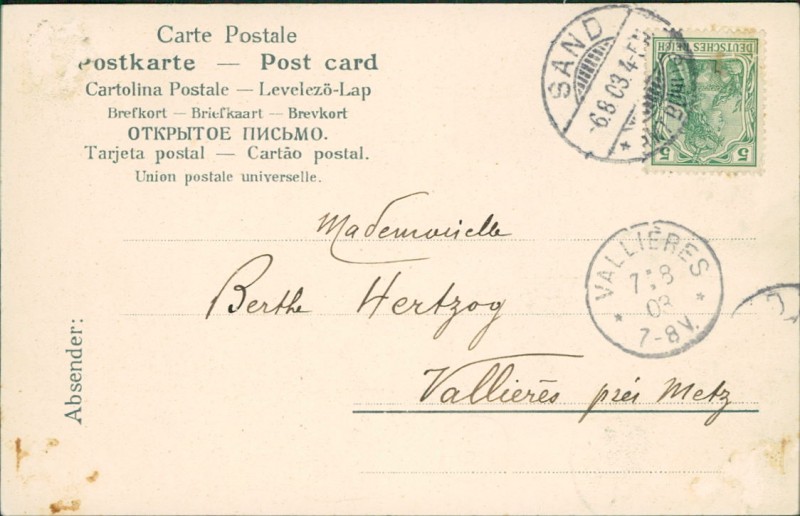 Carte Postale
Postkarte — Post card
Cartolina Postale — Levelezö-Lap
Brefkort — Briefkaart — Brevkort
ОТКРЫТОЕ ПИСЬМО.
Tarjeta postal — Cartão postal.
Union postale universelle.
SAND
-6.8.03.4-5N
DEUTSCHES REICH
5 5
VALLIÈRES
7 8
03
7-8V.
Mademoiselle
Berthe Hertzog
Vallières près Metz
Absender: